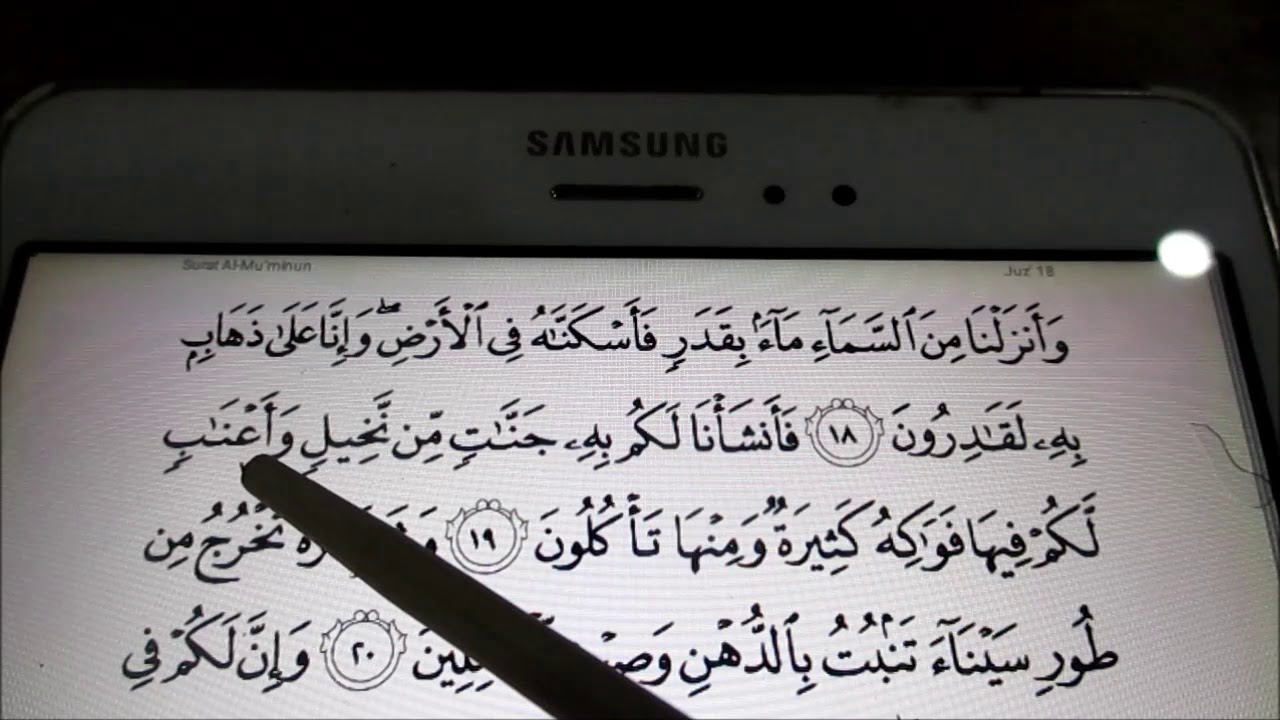 SAMSUNG
Surat Al-Mu'minun Juz' 18
وَأَنزَلْنَا مِنَ ٱلسَّمَآءِ مَآءًۢ بِقَدَرٍ فَأَسْكَنَّٰهُ فِى ٱلْأَرْضِ ۖ وَإِنَّا عَلَىٰ ذَهَابٍۭ
بِهِۦ لَقَٰدِرُونَ ١٨ فَأَنشَأْنَا لَكُم بِهِۦ جَنَّٰتٍ مِّن نَّخِيلٍ وَأَعْنَٰبٍ
لَّكُمْ فِيهَا فَوَٰكِهُ كَثِيرَةٌ وَمِنْهَا تَأْكُلُونَ ١٩ تَخْرُجُ مِن
طُورِ سَيْنَآءَ تَنۢبُتُ بِٱلدُّهْنِ ٢٠ وَإِنَّ لَكُمْ فِى